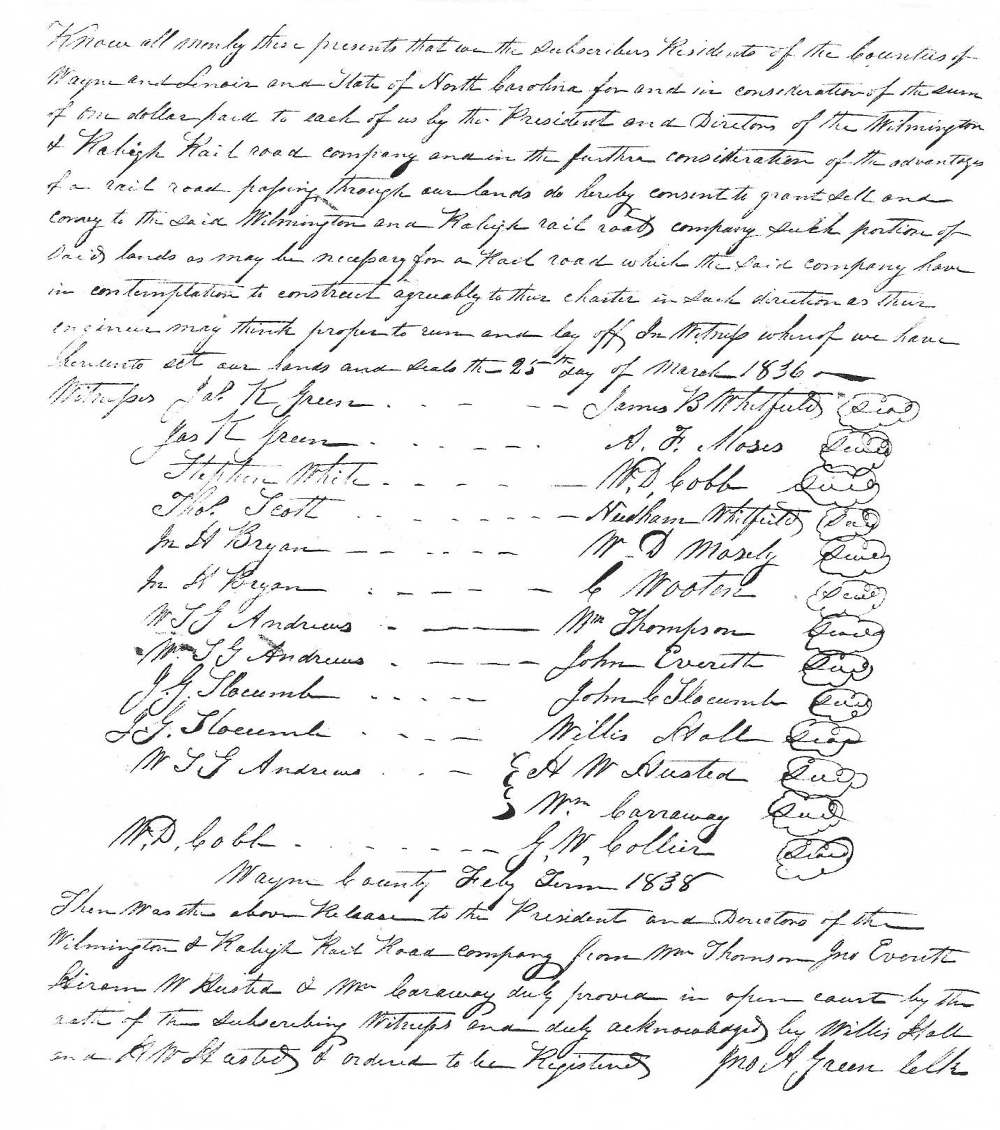 Know all men by these presents that we the Subscribers Residents of the Counties of
Wayne and Lenoir and State of North Carolina for and in consideration of the sum
of One dollar paid to each of us by the President and Directors of the Wilmington
& Raleigh Rail road company and in the further consideration of the advantages
of a rail road passing through our lands do hereby consent to grant sell and
convey to the said Wilmington and Raleigh rail road company such portion of
said lands as may be necessary for a Rail road which the said company have
in contemplation to construct agreeably to their charter in such direction as their
engineer may think proper to run and lay off In Witness whereof we have
hereunto set our hands and seals the 25th day of March 1836
Witnesses Jas K Green James B Whitfield Seal
Jas K Green A. F. Moses Seal
Stephen White W. D. Cobb Seal
Thos. Scott Needham Whitfield Seal
Jn H Bryan W D Mosely Seal
Jn H Bryan C Wooten Seal
W T G Andrews Wm Thompson Seal
Wm T G Andrews John Everett Seal
J G Slocumb John C Slocumb Seal
J. G. Slocumb Willis Hall Seal
W T G Andrews H W Husted Seal
Wm Carraway Seal
W. D. Cobb G. W. Collier Seal
Wayne County Feby Term 1838
Then was the above Release to the President and Directors of the
Wilmington & Raleigh Rail Road company from Wm Thomson Jno Everett
Hiram W Husted & Wm Caraway duly proved in open court by the
oath of the Subscribing Witness and duly acknowledged by Willis Hall
and H W Husted & ordered to be Registered Jno A Green Clk